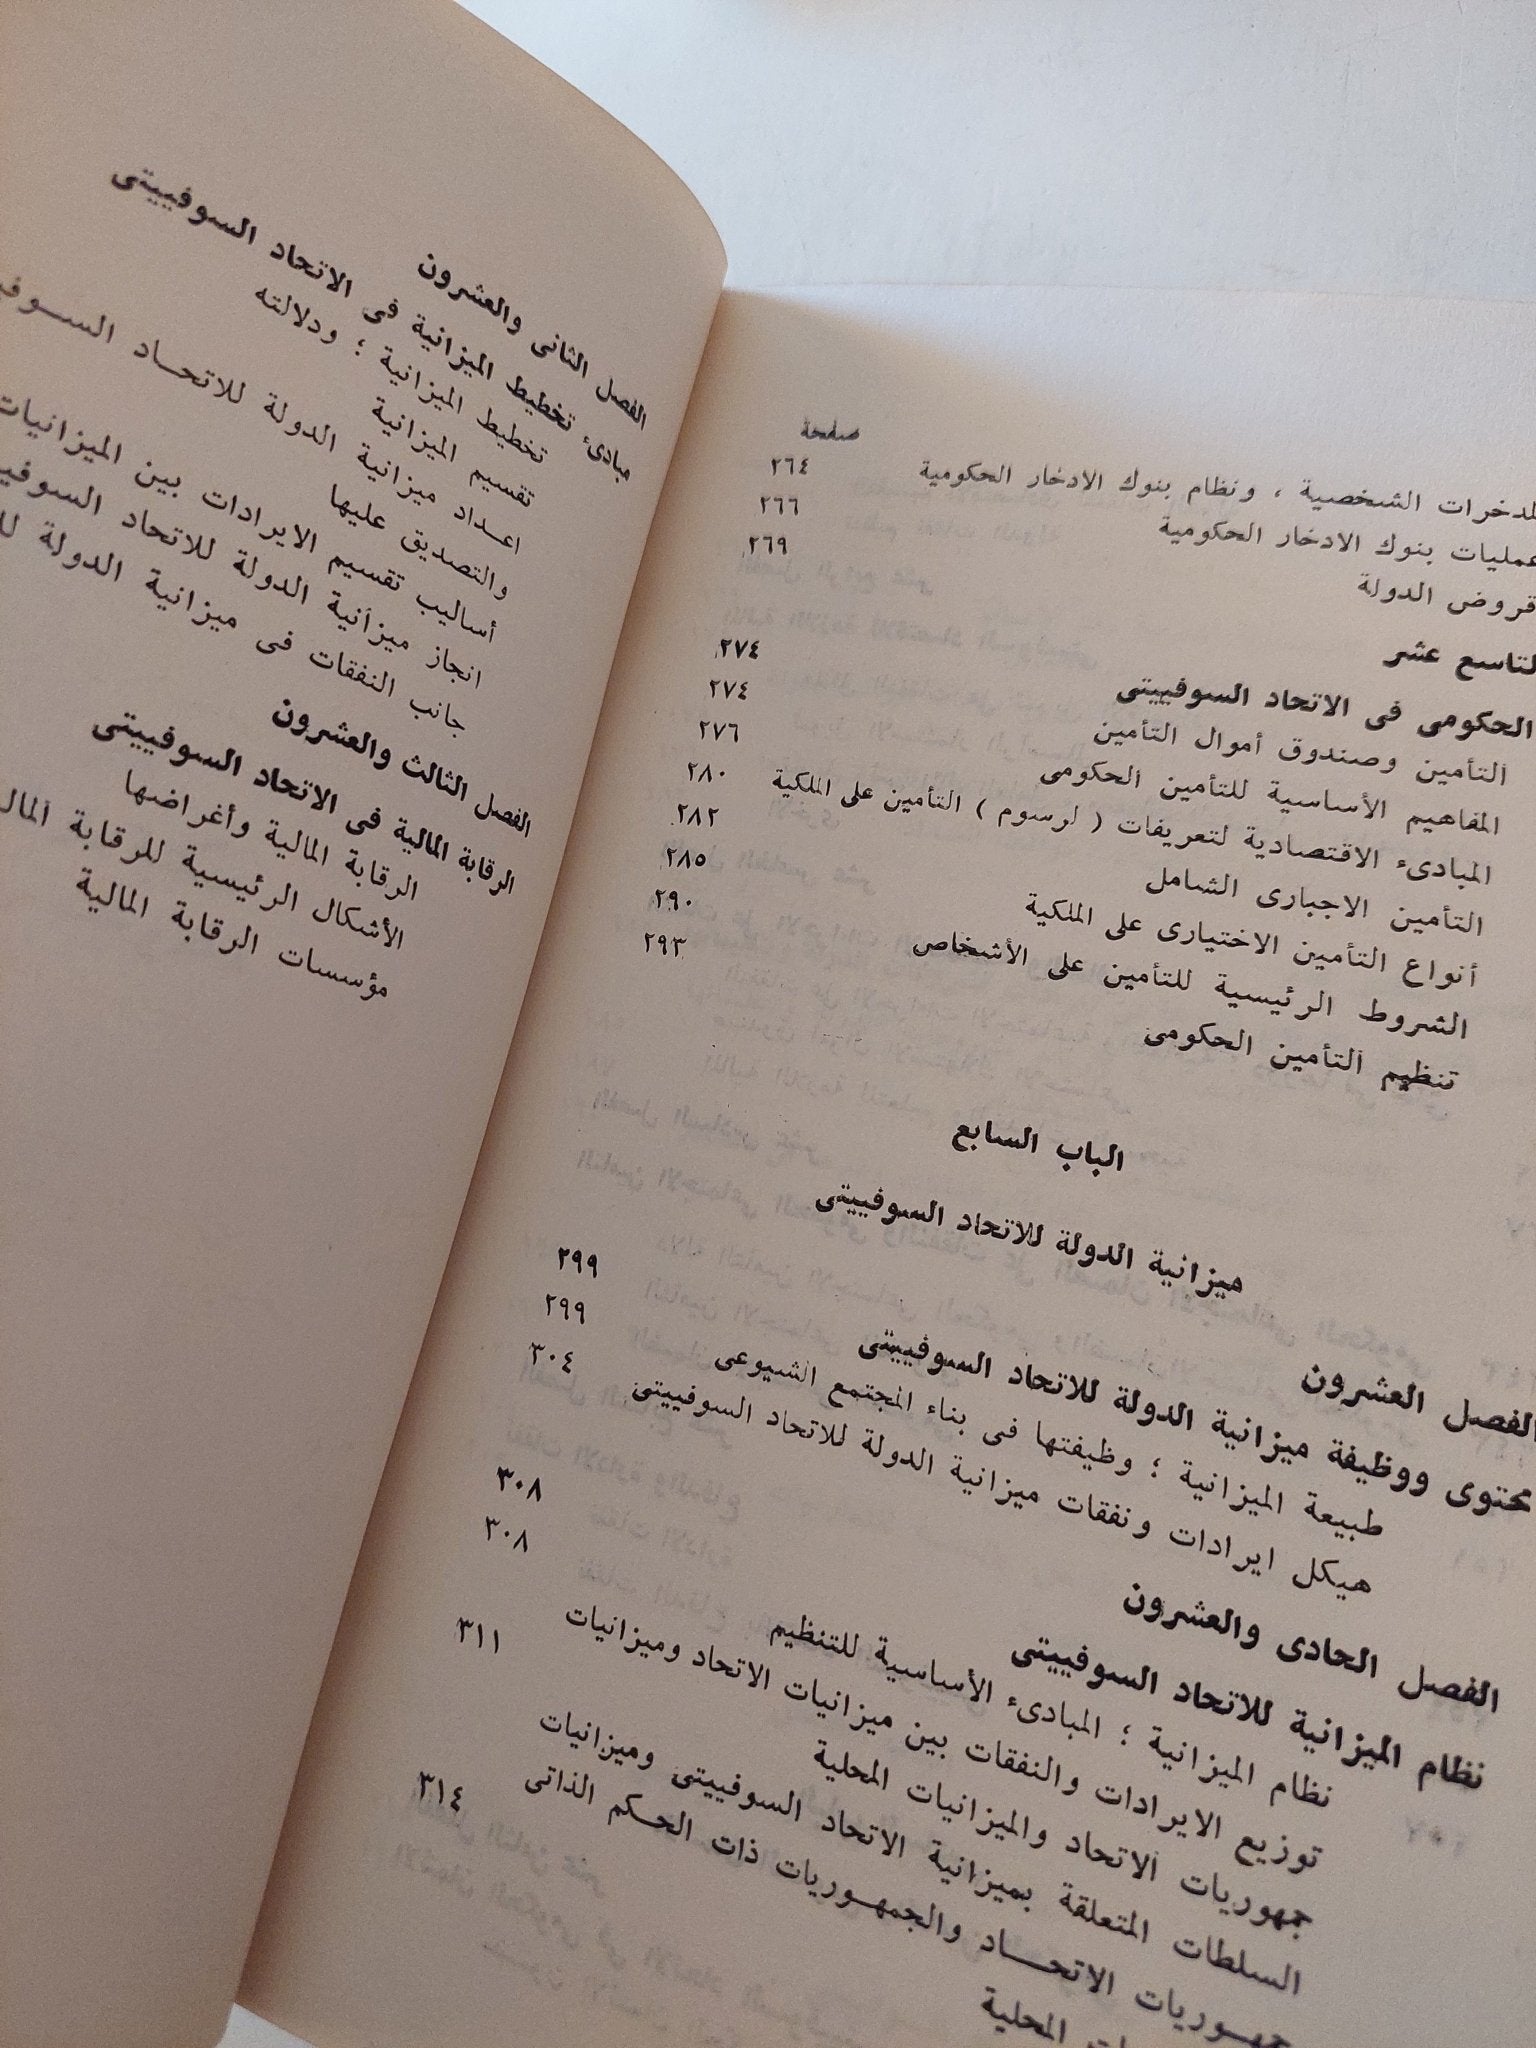 صفحة
المدخرات الشخصية ، ونظام بنوك الادخار الحكومية ٢٦٤
عمليات بنوك الادخار الحكومية ٢٦٦
قروض الدولة ٢٦٩
التاسع عشر
الحكومى فى الاتحاد السوفييتى ٢٧٤
التأمين وصندوق أموال التأمين ٢٧٤
المفاهيم الأساسية للتأمين الحكومى ٢٧٦
المبادىء الاقتصادية لتعريفات ( لرسوم ) التأمين على الملكية ٢٨٠
التأمين الاجبارى الشامل ٢٨٢
أنواع التأمين الاختيارى على الملكية ٢٨٥
الشروط الرئيسية للتأمين على الأشخاص ٢٩٠
تنظيم التأمين الحكومى ٢٩٣
الباب السابع
ميزانية الدولة للاتحاد السوفييتى
الفصل العشرون
محتوى ووظيفة ميزانية الدولة للاتحاد السوفييتى ٢٩٩
طبيعة الميزانية ؛ وظيفتها فى بناء المجتمع الشيوعى ٢٩٩
هيكل ايرادات ونفقات ميزانية الدولة للاتحاد السوفييتى ٣٠٤
الفصل الحادى والعشرون
نظام الميزانية للاتحاد السوفييتى ٣٠٨
نظام الميزانية ؛ المبادىء الأساسية للتنظيم ٣٠٨
توزيع الايرادات والنفقات بين ميزانيات الاتحاد وميزانيات
جمهوريات الاتحاد والميزانيات المحلية ٣١١
السلطات المتعلقة بميزانية الاتحاد السوفييتى وميزانيات
جمهوريات الاتحاد والجمهوريات ذات الحكم الذاتى
المحلية ٣١٤
الفصل الثانى والعشرون
مبادىء تخطيط الميزانية فى الاتحاد السوفييتى
تخطيط الميزانية ؛ ودلالته
تقسيم الميزانية
اعداد ميزانية الدولة للاتحاد
والتصديق عليها
أساليب تقسيم الايرادات بين الميزانيات
انجاز ميزانية الدولة للاتحاد
جانب النفقات فى ميزانية الدولة
الفصل الثالث والعشرون
الرقابة المالية فى الاتحاد السوفييتى
الرقابة المالية وأغراضها
الأشكال الرئيسية للرقابة
مؤسسات الرقابة المالية